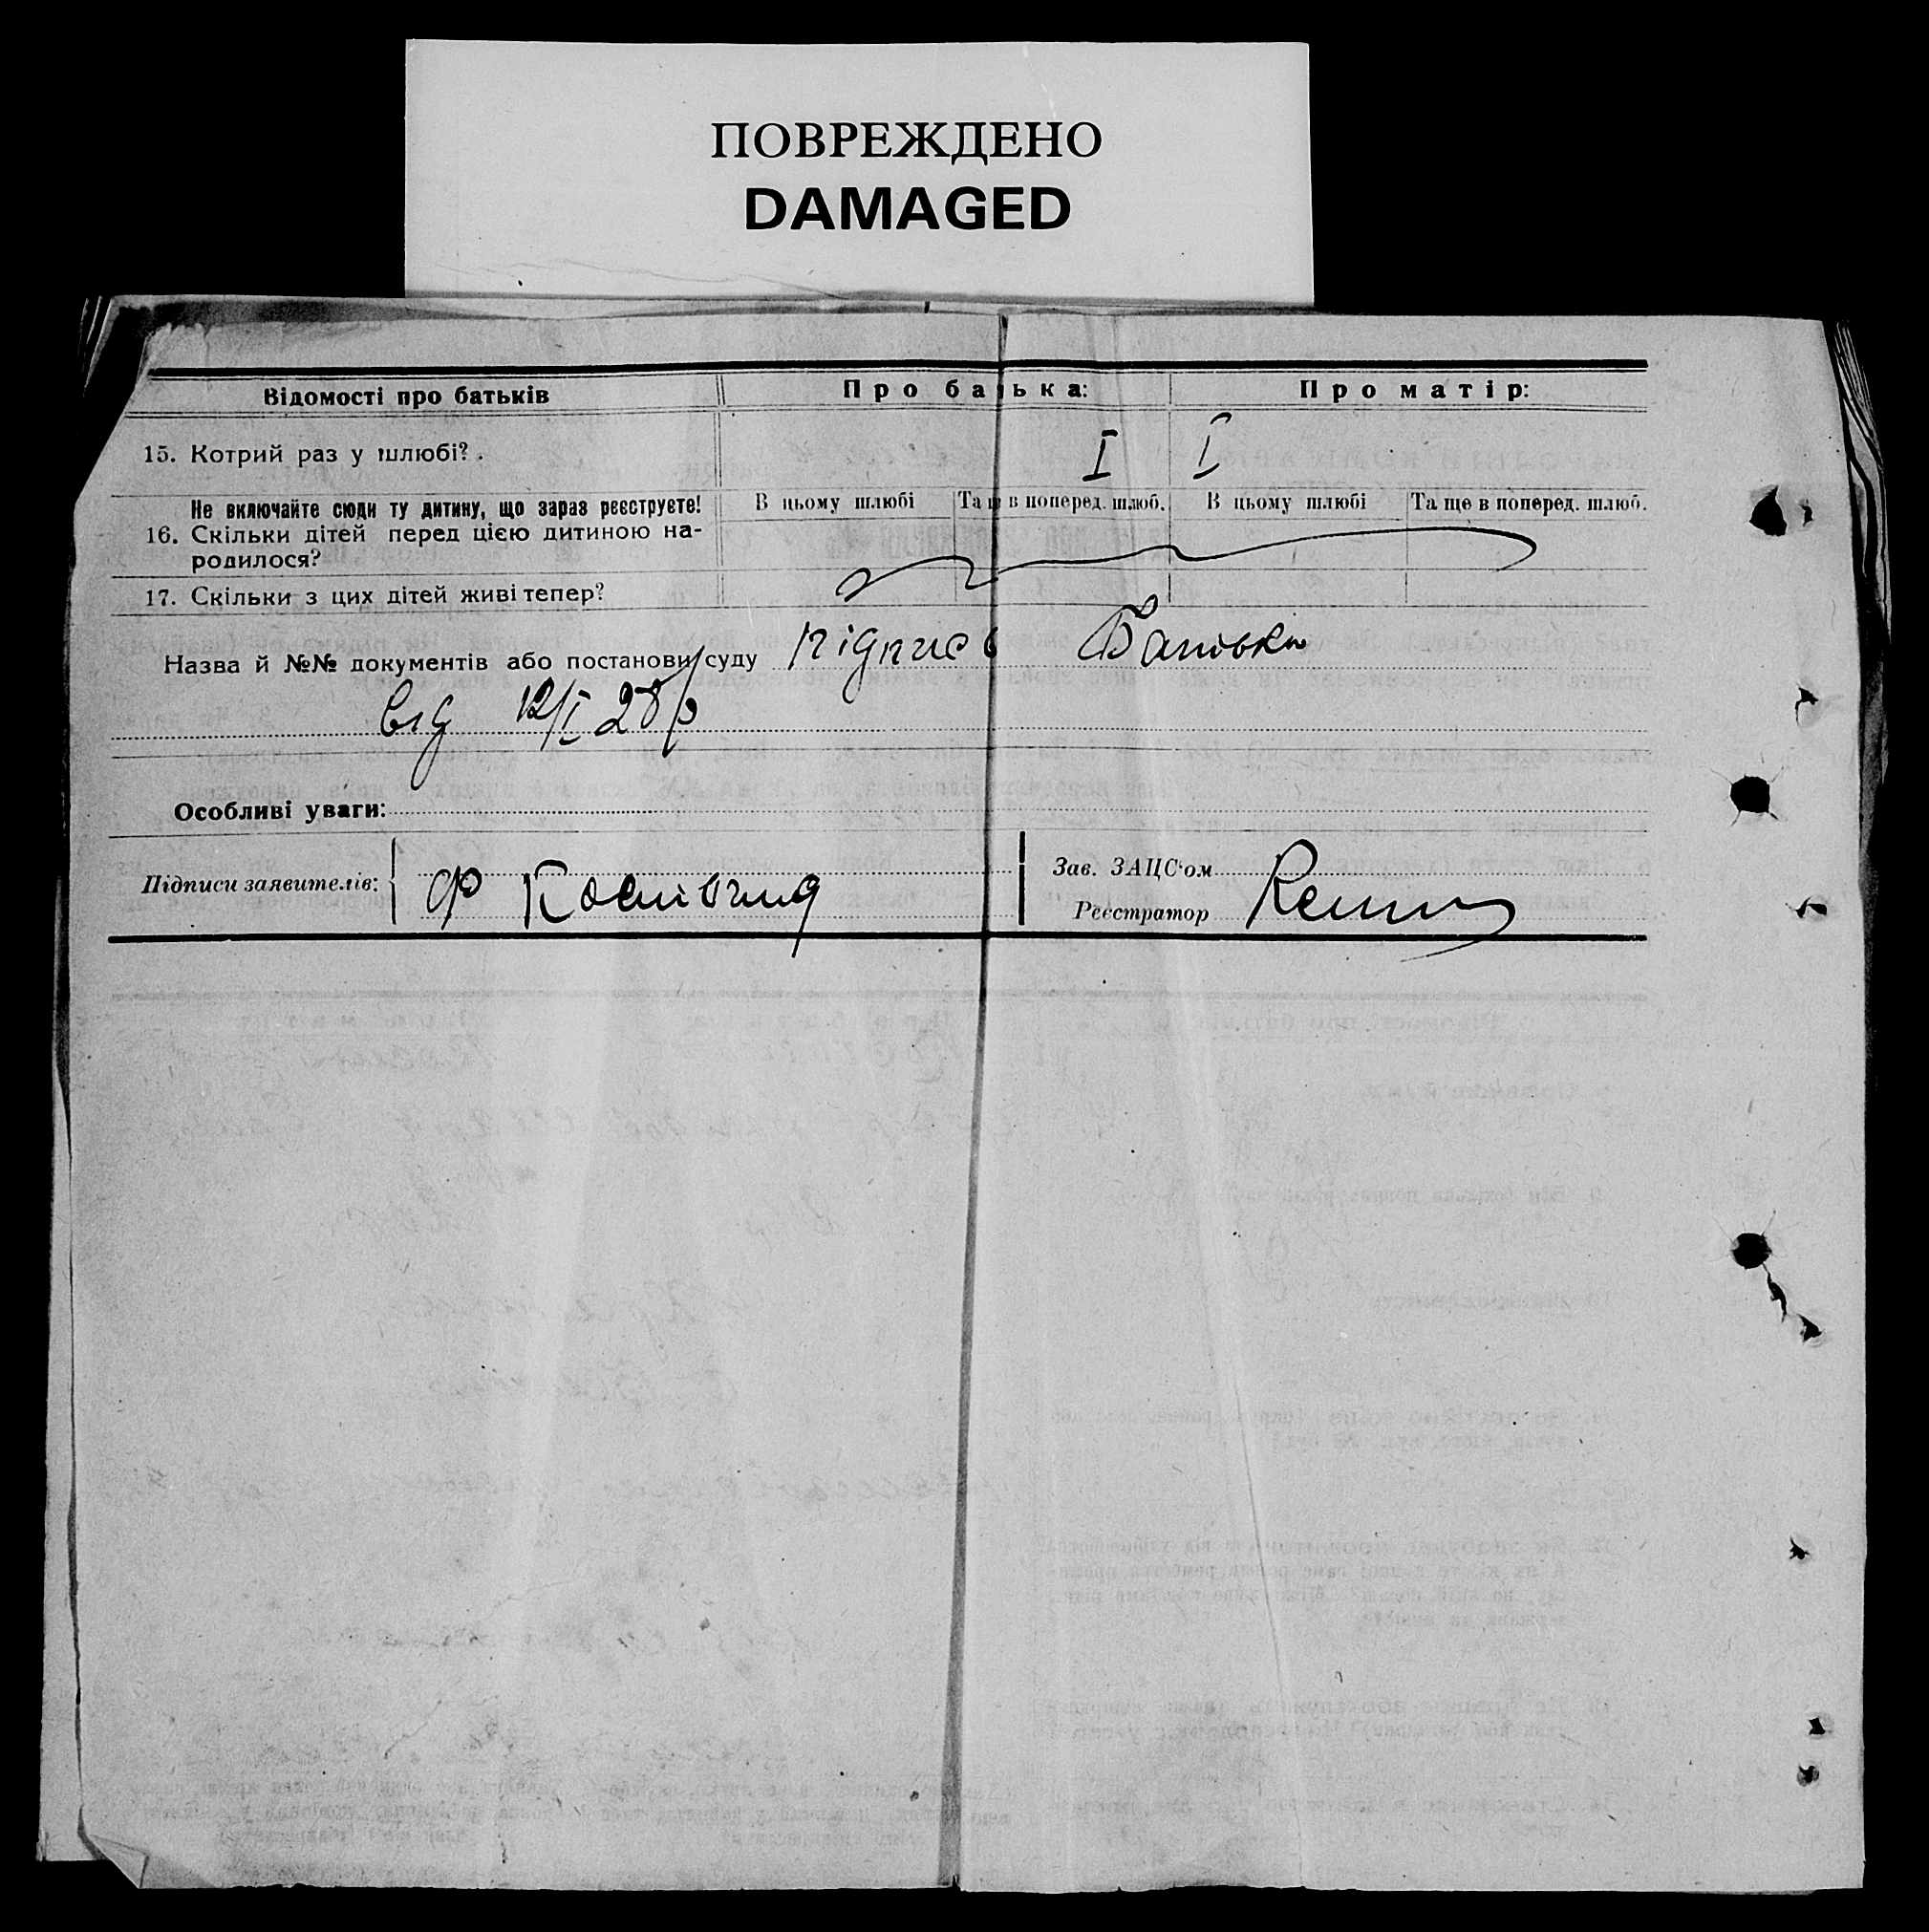 ПОВРЕЖДЕНО
DAMAGED
Відомості про батьків
Про батька:
Про матір:
15. Котрий раз у шлюбі?.
I
I
Не включайте сюди ту дитину, що зараз реєструєте!
16. Скільки дітей перед цією дитиною на-
родилося?
В цьому шлюбі
Та ще в поперед. шлюб.
В цьому шлюбі
Та ще в поперед. шлюб.
17. Скільки з цих дітей живі тепер?
Назва й №№ документів або постанови суду підпись Батька
від 12/I 28 р
Особливі уваги:
Підписи заявителів: Ф
Зав. ЗАЦС'ом
Реєстратор